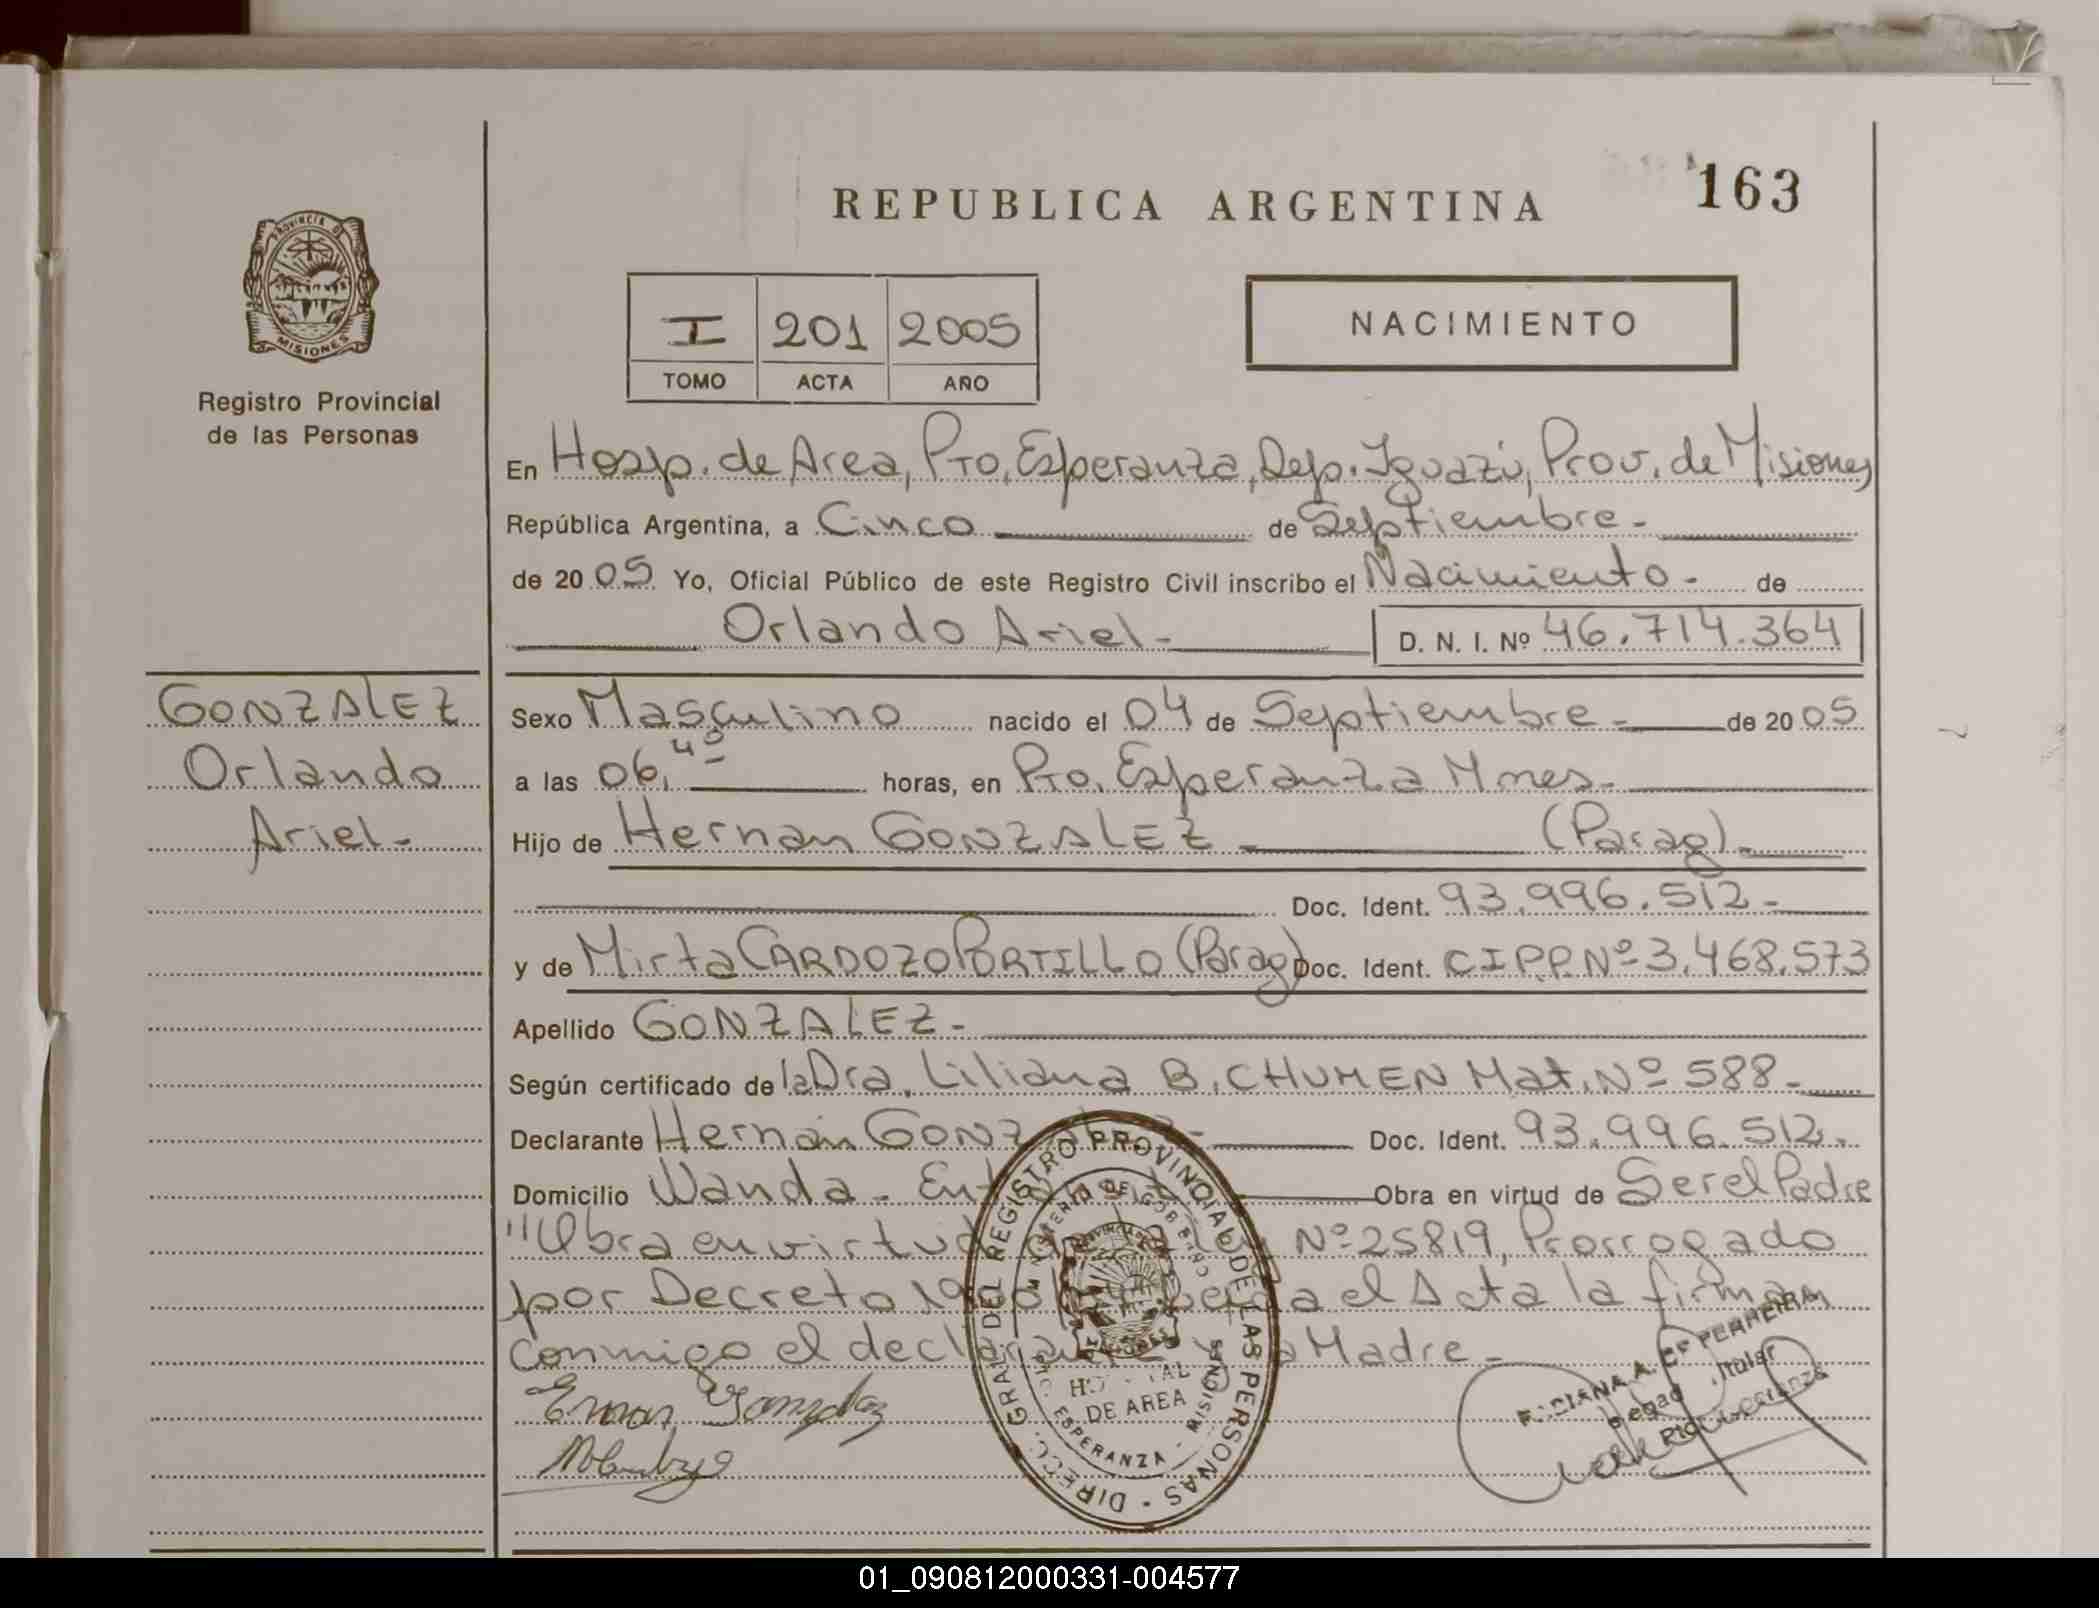 REPUBLICA ARGENTINA
163
PROVINCIA DE
MISIONES
Registro Provincial
de las Personas
I 201 2005
TOMO ACTA AÑO
NACIMIENTO
En Hosp. de Area, Pto. Esperanza, Dep. Iguazú, Prov. de Misiones
República Argentina, a Cinco de Septiembre.-
de 2005 Yo, Oficial Público de este Registro Civil inscribo el Nacimiento.- de
Orlando Ariel.-
D. N. I. Nº 46.714.364
GONZALEZ
Orlando
Ariel.-
Sexo Masculino nacido el 04 de Septiembre.- de 2005
a las 06,40 horas, en Pto. Esperanza Mnes.-
Hijo de Hernan GONZALEZ.- (Parag).-
Doc. Ident. 93.996.512.-
y de Mirta CARDOZO PORTILLO (Parag) Doc. Ident. CIPP. Nº 3.468.573
Apellido GONZALEZ.-
Según certificado de la Dra. Liliana B. CHUMEN Mat. Nº 588.-
Declarante Hernán Doc. Ident. 93.996.512.
Domicilio Wanda.- Obra en virtud de Ser el Padre
"Obra en virtud Nº 25819, Prorrogado
por Decreto el Acta la firman
conmigo el Madre.-
DIRECC. GRAL. DEL REGISTRO PROVINCIAL DE LAS PERSONAS
MINISTERIO DE GOBIERNO
HOSPITAL
DE AREA
ESPERANZA - MISIONES
FERREIRA
Titular
01_090812000331-004577